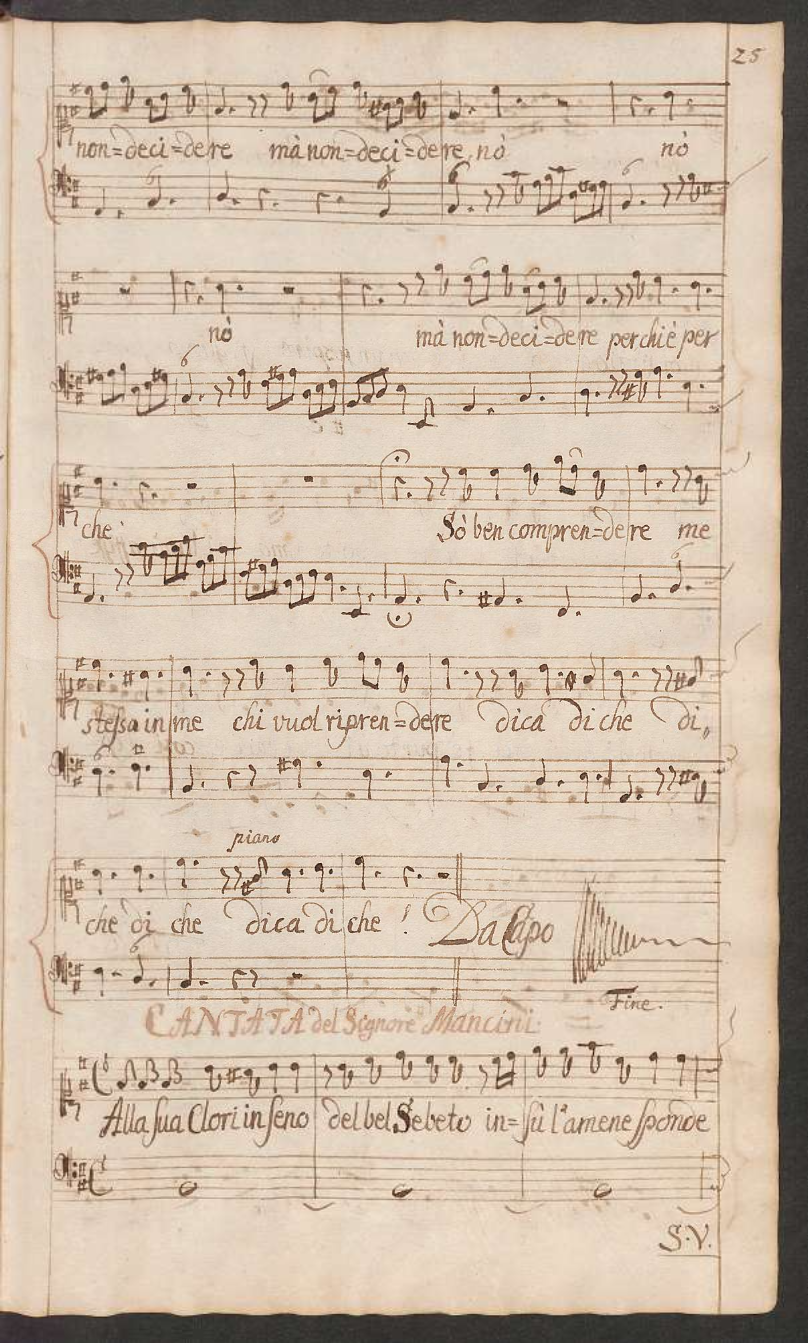 25
non=deci=dere mà non=deci=dere nò nò
nò mà non=deci=dere perchiè per
che Sò ben compren=dere me
stessa in me chi vuol ripren=dere dica di che di,,
piano
che di che dica di che! Da Capo
Fine.
CANTATA del Signore Mancini
Alla sua Clori in seno del bel Sebeto in=sù l'amene sponde
S.V.